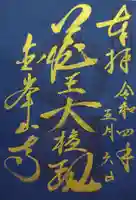 奉拝 令和四年
五月六日
蔵王大権現
金峯山寺